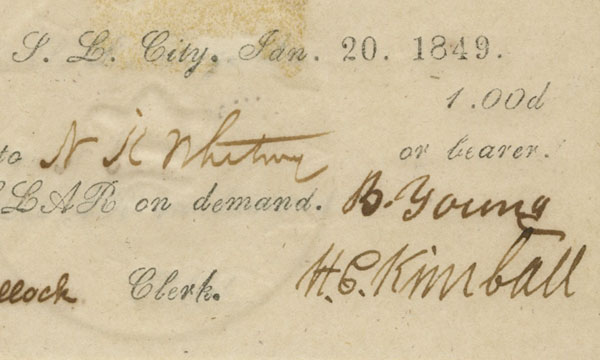 S. L. City, Jan. 20. 1849.
1.00d
to N K Whitney or bearer.
LLAR on demand. B. Young
llock Clerk. H. C. Kimball